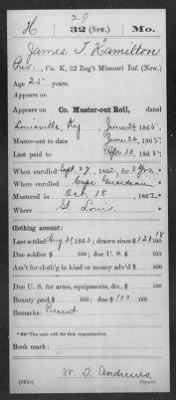 29
H 32 (New.) Mo.
James T. Hamilton
Pvt., Co. K, 32 Reg't Missouri Inf. (New.)
Age 25 years.
Appears on
Co. Muster-out Roll, dated
Louisville, Ky June 26, 1865.
Muster-out to date June 26, 1865.
Last paid to Apr 30, 1865.
When enrolled Sept. 27, 1862, for 3 yrs.
Where enrolled Cape Girardeau
Mustered in Oct. 18, 1862.
Where St. Louis
Clothing account:
Last settled Aug 31, 1863; drawn since $121 18/100
Due soldier $ 100; due U. S. $ 100
Am't for cloth'g in kind or money adv'd $ 100
Due U. S. for arms, equipments, &c., $ 100
Bounty paid $ 100; due $ 100 100
Remarks: Present
* 32 (New) the only roll for this organization.
Book mark:
W. T. Andrews
(861c) Copyist.